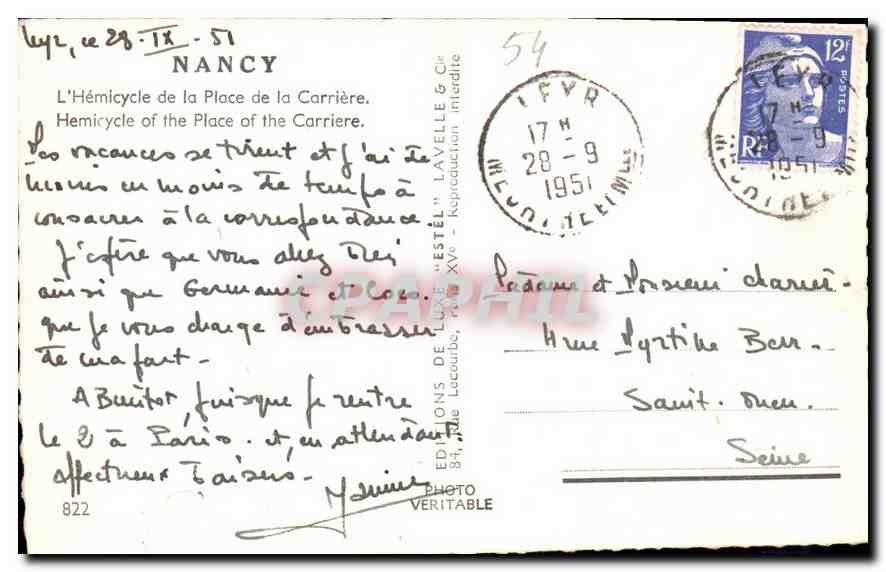 Leyr, ce 28-IX-51
NANCY
L'Hémicycle de la Place de la Carrière.
Hemicycle of the Place of the Carriere.
Les vacances se tirent et j'ai de
moins en moins de temps à
consacrer à la correspondance.
J'espère que vous allez bien
ainsi que Germaine et Coco.
que je vous charge d'embrasser
de ma part -
A Bientôt, puisque je rentre
le 2 à Paris. et, en attendant.
affectueux baisers -
Janine
822
PHOTO
VERITABLE
EDITIONS DE LUXE "ESTEL" LAVELLE & Cie
84, Rue Lecourbe, Paris XVe - Reproduction interdite
CPAPHIL
54
LEYR
17 H
28 - 9
1951
MEURTHE ET M LLE
12F
POSTES
RF
LEYR
17 H
28 - 9
1951
Madame et Monsieur
4 rue Myrtille Beer -
Saint-Ouen.
Seine